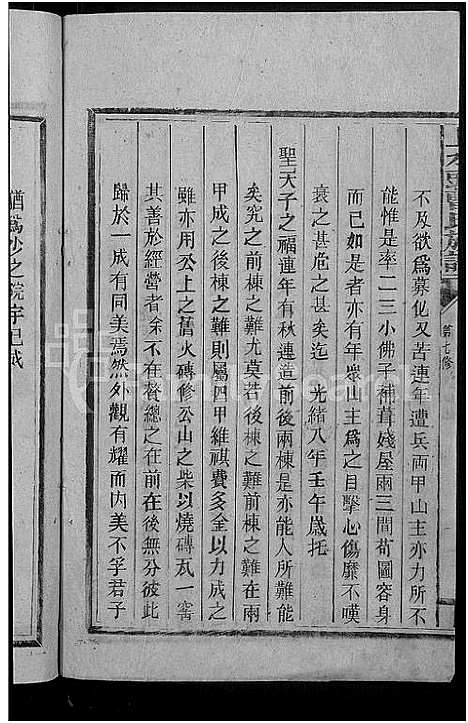 不及欲為募化又苦連年遭兵兩甲山主亦力所不
能惟是率一二三小佛子補葺殘屋兩三間茍圖容身
而已如是者亦有年衆山主為之目擊心傷靡不嘆
衰之甚危之甚矣迄　光緒八年壬午歲托
聖天子之福連年有秋連造前後兩棟是亦能人所難能
矣究之前棟之難尤莫若後棟之難前棟之難在兩
甲成之後棟之難則屬四甲維祺費多金以力成之
雖亦用公上之舊火磚修公山之柴以燒磚瓦一窰
其善於經營者余不在贅總之在前在後無分彼此
歸於一成有同美焉然外觀有耀而內美不孚君子
猶為妙之院宇已哉
氏族譜
七修